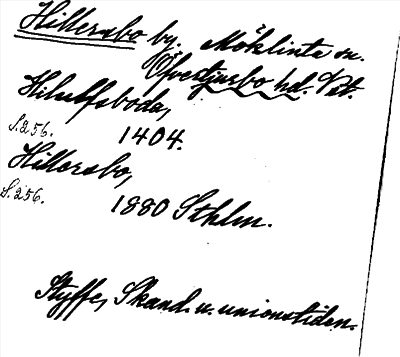 Hillersbo by. Möklinta sn.
Öfvertjurbo hd. Vstm.
Hilulfsboda,
S. 256. 1404.
Hillersbo,
S. 256. 1880 Sthlm.
Styffe, Skand. u. unionstiden.